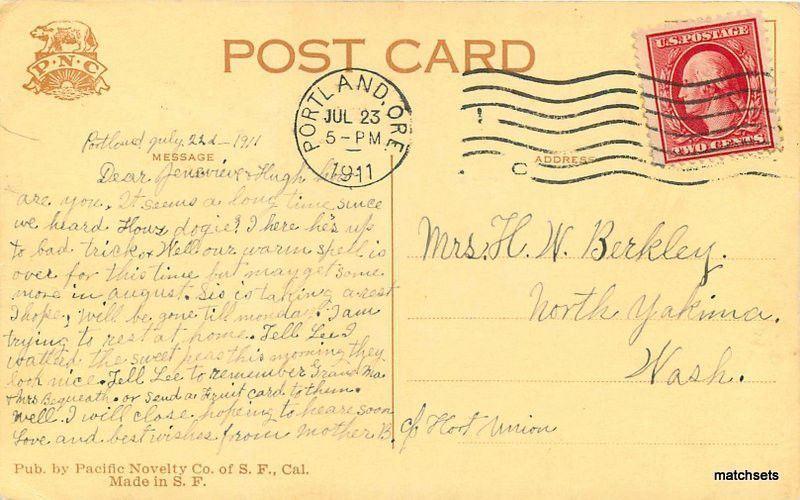 P·N·C
POST CARD
PORTLAND, ORE
JUL 23
5-PM
1911
U.S. POSTAGE
TWO CENTS
Portland July, 22d - 1911
MESSAGE
ADDRESS
Dear Jenevieve & Hugh how
are you. It seems a long time since
we heard Houz dogie? I here he's up
to bad trick. Well our warm spell is
over for this time but may get some
more in august. Sis is taking a rest
I hope, will be gone till monday. I am
trying to rest at home. Tell Lee I
watterd the sweet peas this morning they
look nice. Tell Lee to remember Grand Ma
& Mrs Bequeath. or send a Fruit card to them.
Well I will close hopeing to heare soon
Love and best wishes from Mother B.
Mrs. H. W. Berkley.
North Yakima.
Wash.
c/o Hoot Union
Pub. by Pacific Novelty Co. of S. F., Cal.
Made in S. F.
matchsets